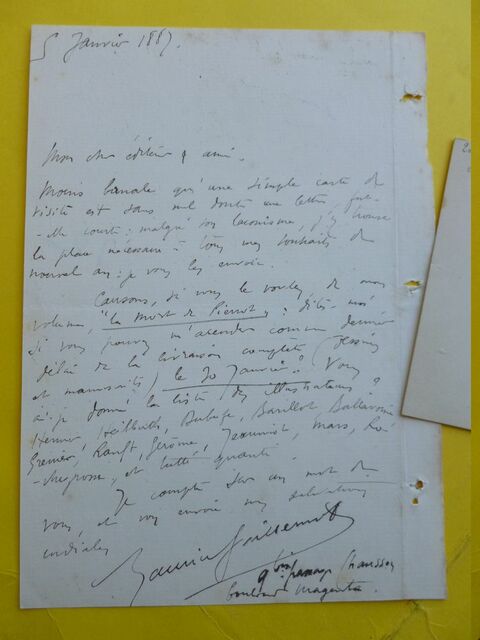 5 Janvier 1887.
Mon cher éditeur & ami.
Moins banale qu'une simple carte de
visite est sans nul doute une lettre, fut-
-elle courte : malgré son laconisme, j'y trouve
la place nécessaire à tous mes souhaits de
nouvel an : je vous les envoie.
Causons, si vous le voulez, de mon
volume, "la mort de Pierrot" : dites-moi
si vous pouvez m'accorder comme dernier
délai de la livraison complète (dessins
et manuscrits) le 30 Janvier ? Vous
ai-je donné la liste des illustrateurs ?
Henner, Heilbuth, Dubufe, Barillot, Ballavoine
Grenier, Ranft, Gérôme, Jeanniot, Mars, Ro-
-chegrosse, et tutti quanti
Je compte sur un mot de
vous, et vous envoie mes salutations
cordiales
Maurice Guillemot
9 bis passage Chausson
boulevard Magenta.